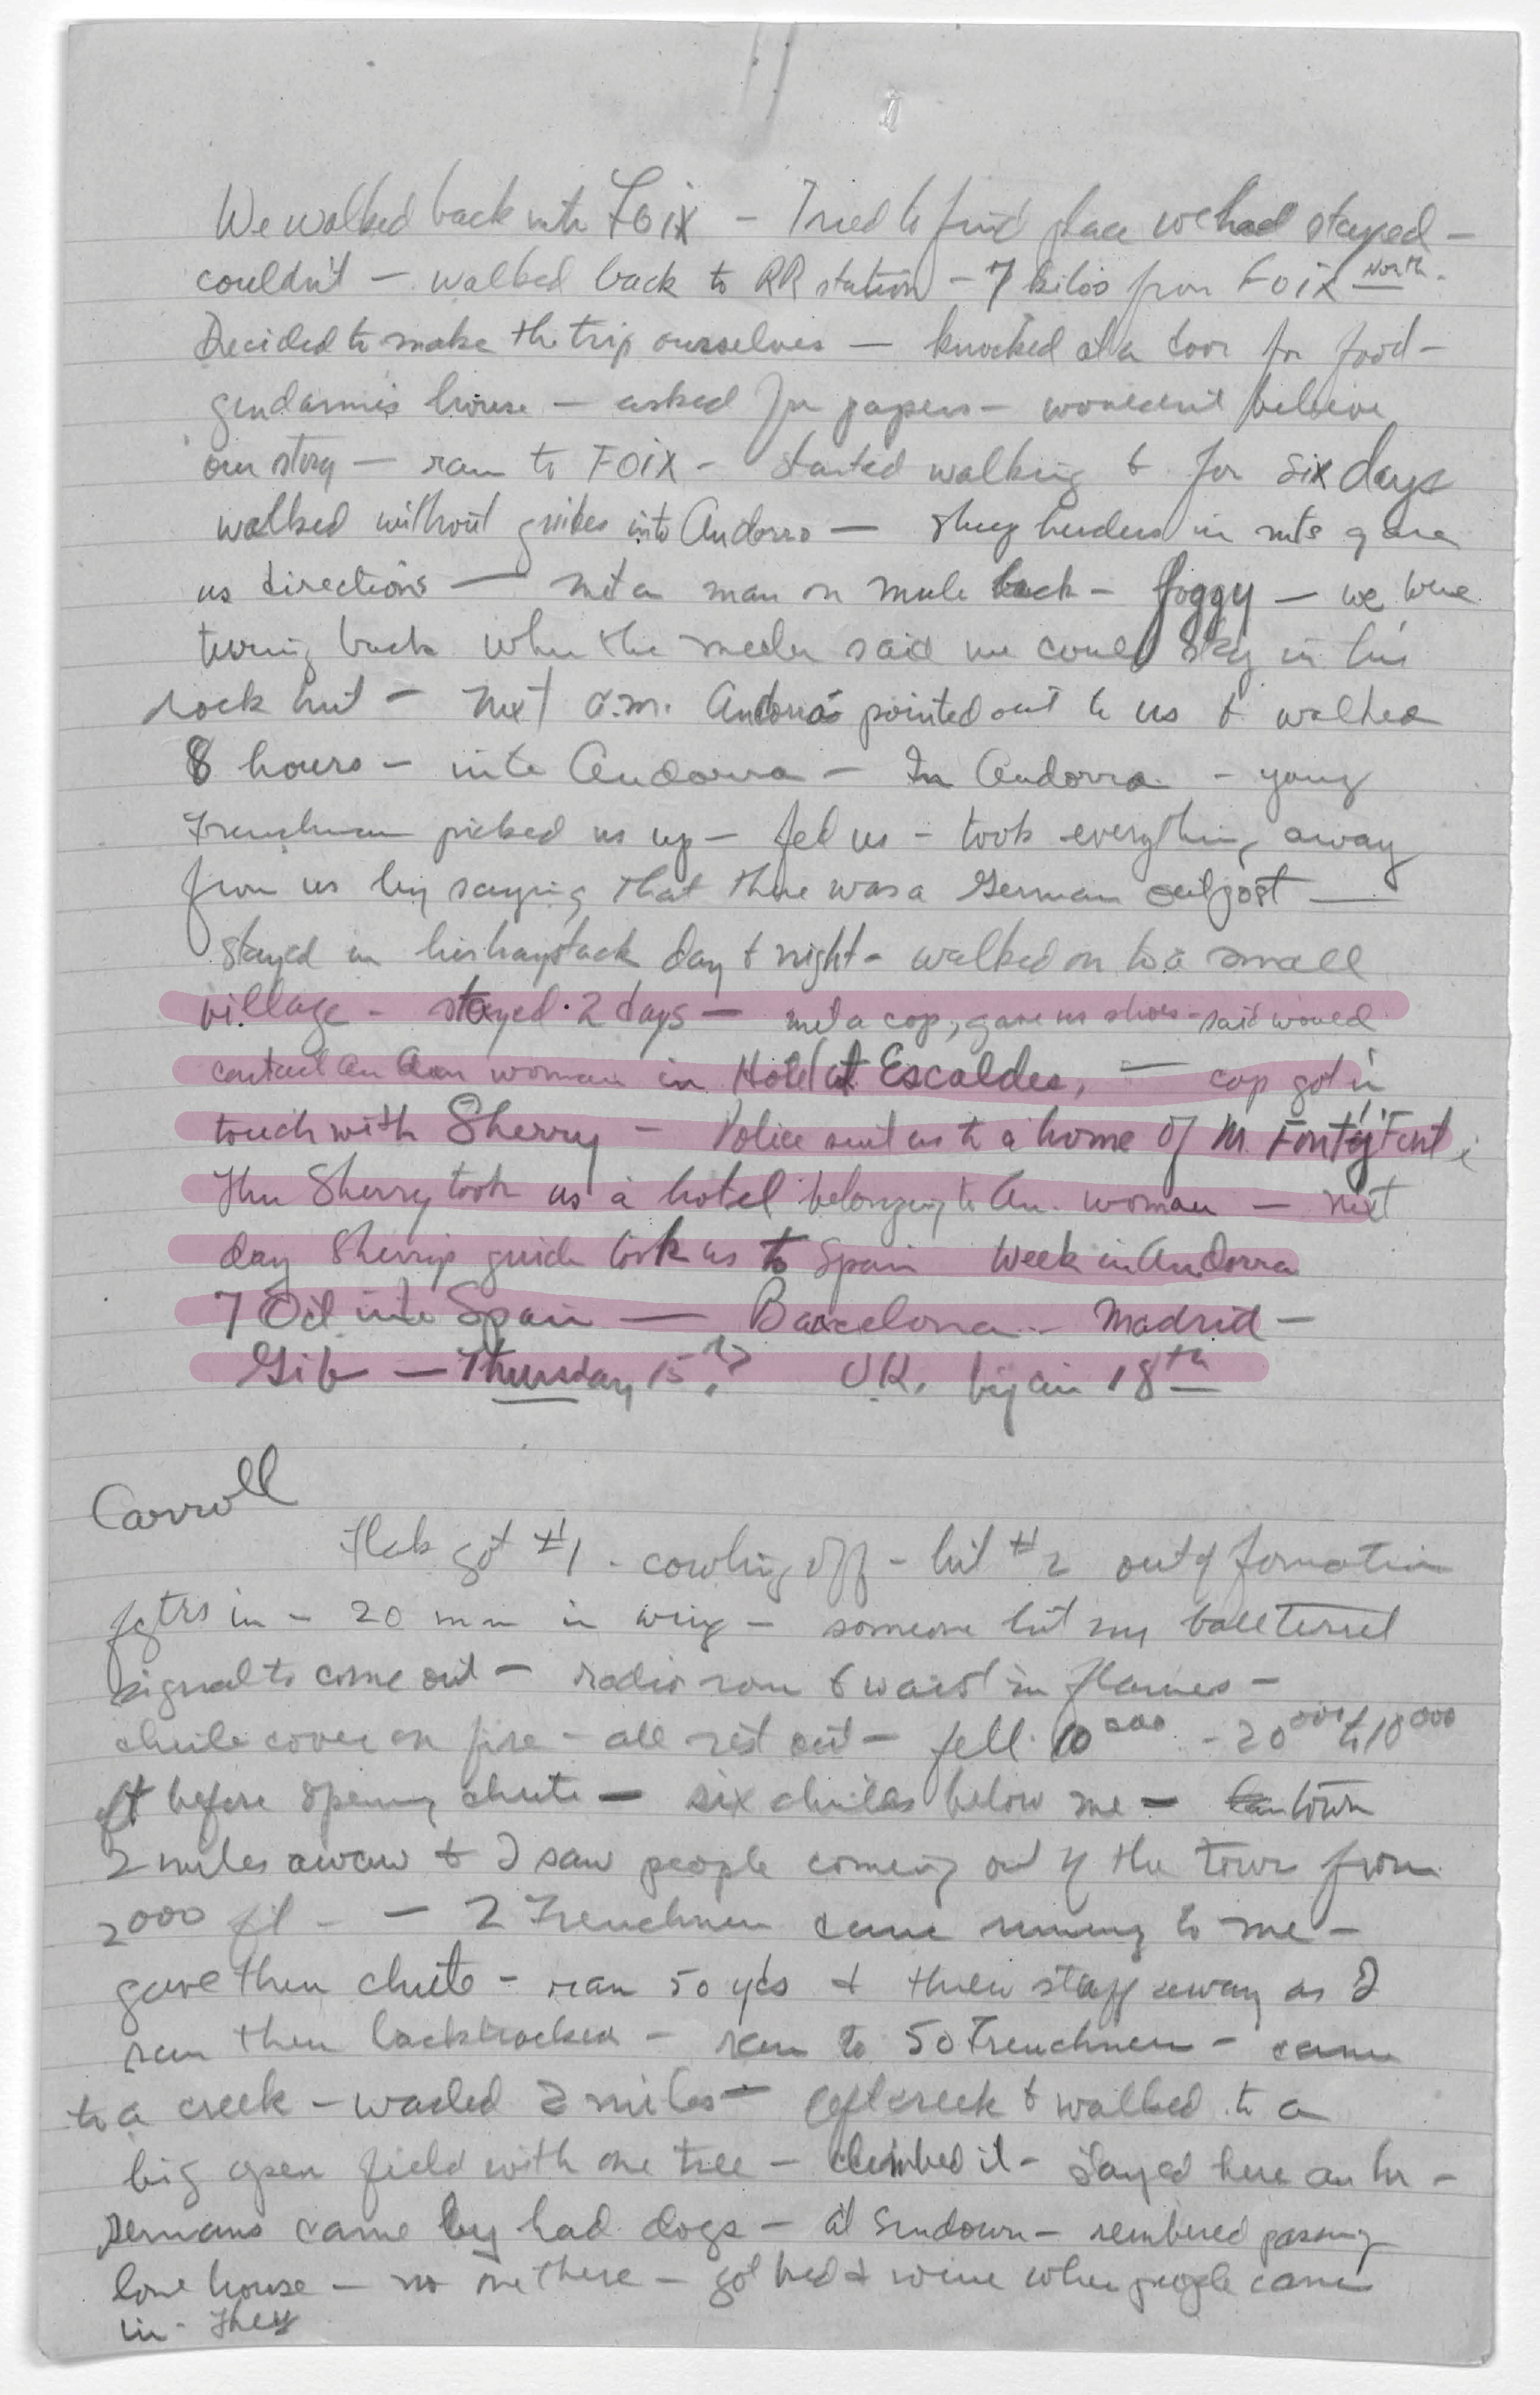 We walked back into FOIX - Tried to find place we had stayed -
couldn't - walked back to RR station - 7 kilos from FOIX North -
Decided to make the trip ourselves - knocked at a door for food -
gendarmes house - asked for papers - wouldn't believe
our story - ran to FOIX - started walking & for six days
walked without guides into Andorra - sheep herders in mts gave
us directions - met a man on mule back - foggy - we were
turning back when the said we could stay in his
rock hut - next a.m. Andorra pointed out to us & walked
8 hours - into Andorra - In Andorra - young
Frenchman picked us up - fed us - took everything away
from us by saying that there was a German outpost -
stayed in his haystack day & night - walked on to a small
village - stayed 2 days - met a cop, gave us shoes - said would
contact an Am woman in Hotel at Escaldes, - cop got in
touch with Sherry - Police sent us to a home of M.
Then Sherry took us a hotel belonging to Am. woman - next
day Sherrys guide took us to Spain Week in Andorra
7 Oct into Spain - Barcelona - Madrid -
Gib - Thursday 15? U.K. by air 18th
Carroll
Flak got #1 - cowling off - hit #2 out of formation
fgtrs in - 20 mm in wing - someone hit my ball turret
signal to come out - radio room & waist in flames -
chute cover on fire - all rest out - fell 10000 - 20000 to 10000
ft before opening chute - six chutes below me - town
2 miles away & I saw people coming out of the town from
2000 ft - - 2 Frenchmen came running to me -
gave them chute - ran 50 yds & threw stuff away as I
ran then backtracked - ran to 50 Frenchmen - came
to a creek - waded 2 miles - left creek & walked to a
big open field with one tree - climbed it - stayed here an hr -
Germans came by had dogs - at sundown - rembered passing
lone house - no one there - got bed & wine when people came
in - They